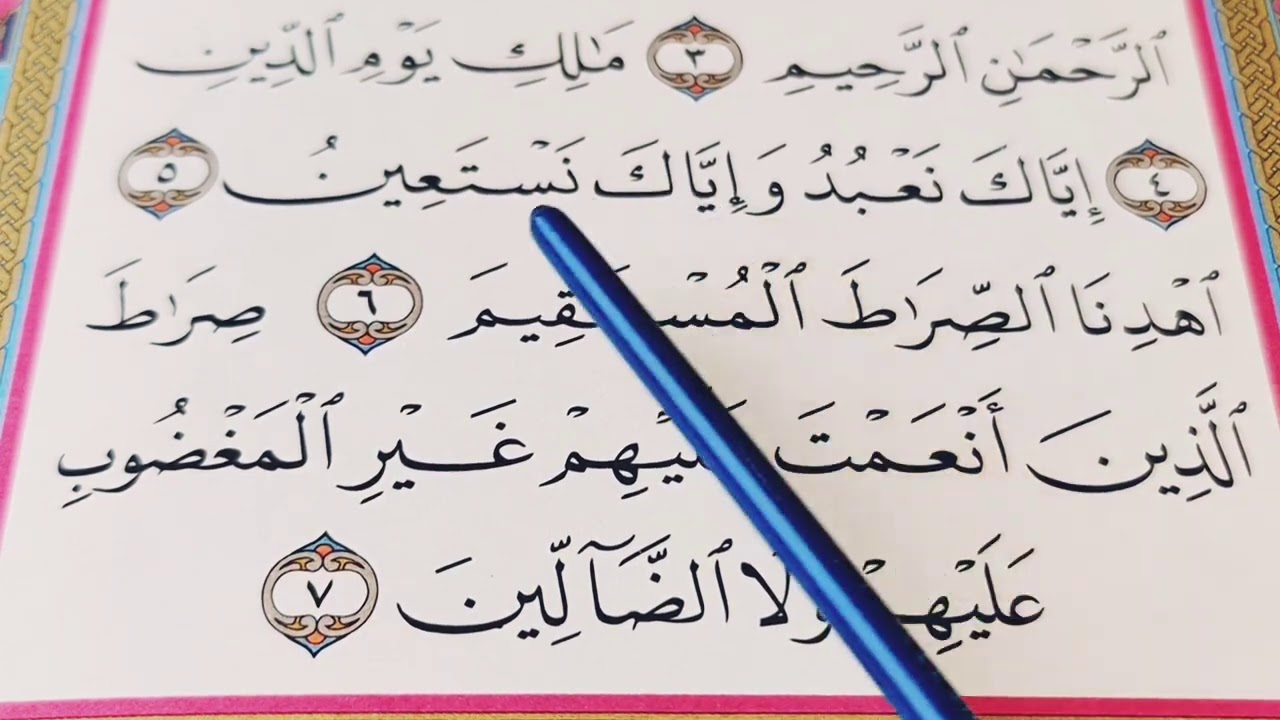 ٱلرَّحْمَٰنِ ٱلرَّحِيمِ ٣ مَٰلِكِ يَوْمِ ٱلدِّينِ
٤ إِيَّاكَ نَعْبُدُ وَإِيَّاكَ نَسْتَعِينُ ٥
ٱهْدِنَا ٱلصِّرَٰطَ ٱلْمُسْتَقِيمَ ٦ صِرَٰطَ
ٱلَّذِينَ أَنْعَمْتَ عَلَيْهِمْ غَيْرِ ٱلْمَغْضُوبِ
عَلَيْهِمْ وَلَا ٱلضَّآلِّينَ ٧